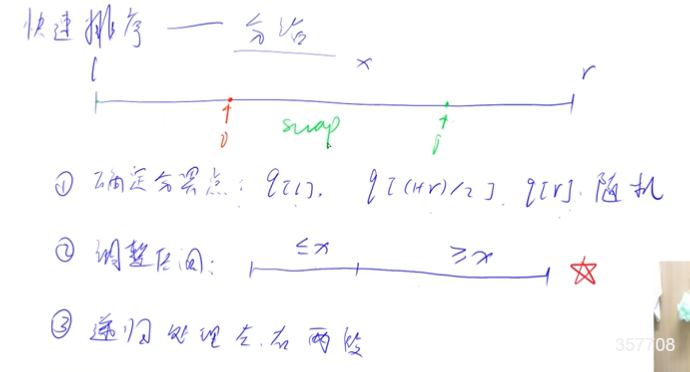 快速排序 —— 分治
l x r
i swap j
① 确定分界点: q[l], q[(l+r)/2], q[r], 随机
② 调整区间: ≤x ≥x ☆
③ 递归处理左、右两段
357708